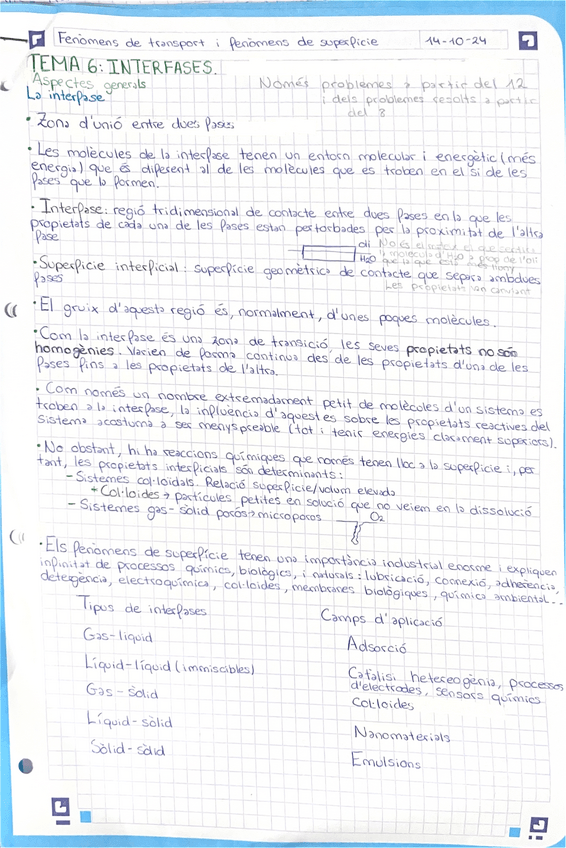 Fenòmens de transport i fenòmens de superfície
14-10-24
TEMA 6: INTERFASES.
Aspectes generals
Només problemes a partir del 12
i dels problemes resolts a partir
del 8
La interfase
• Zona d'unió entre dues fases
• Les molècules de la interfase tenen un entorn molecular i energètic (més
energia) que és diferent al de les molècules que es troben en el si de les
fases que la formen.
• Interfase: regió tridimensional de contacte entre dues fases en la que les
propietats de cada una de les fases estan pertorbades per la proximitat de l'altra
fase
oli
H2O
• Superfície interficial: superfície geomètrica de contacte que separa ambdues
fases
Les propietats van canviant
• El gruix d'aquesta regió és, normalment, d'unes poques molècules.
• Com la interfase és una zona de transició, les seves propietats no són
homogènies. Varien de forma contínua des de les propietats d'una de les
fases fins a les propietats de l'altra.
• Com només un nombre extremadament petit de molècules d'un sistema es
troben a la interfase, la influència d'aquestes sobre les propietats reactives del
sistema acostuma a ser menyspreable (tot i tenir energies clarament superiors).
• No obstant, hi ha reaccions químiques que només tenen lloc a la superfície i, per
tant, les propietats interficials són determinants:
- Sistemes col·loidals. Relació superfície/volum elevada
Col·loides → partícules petites en solució que no veiem en la dissolució
- Sistemes gas-sòlid porós → microporos
O2
• Els fenòmens de superfície tenen una importància industrial enorme i expliquen
infinitat de processos químics, biològics, i naturals: lubricació, connexió, adherència,
detergència, electroquímica, col·loides, membranes biològiques, química ambiental...
Tipus de interfases
Gas-líquid
Líquid-líquid (immiscibles)
Gas-sòlid
Líquid-sòlid
Sòlid-sòlid
Camps d'aplicació
Adsorció
Catàlisi hetereogènia, processos
d'electrodes, sensors químics
Col·loides
Nanomaterials
Emulsions